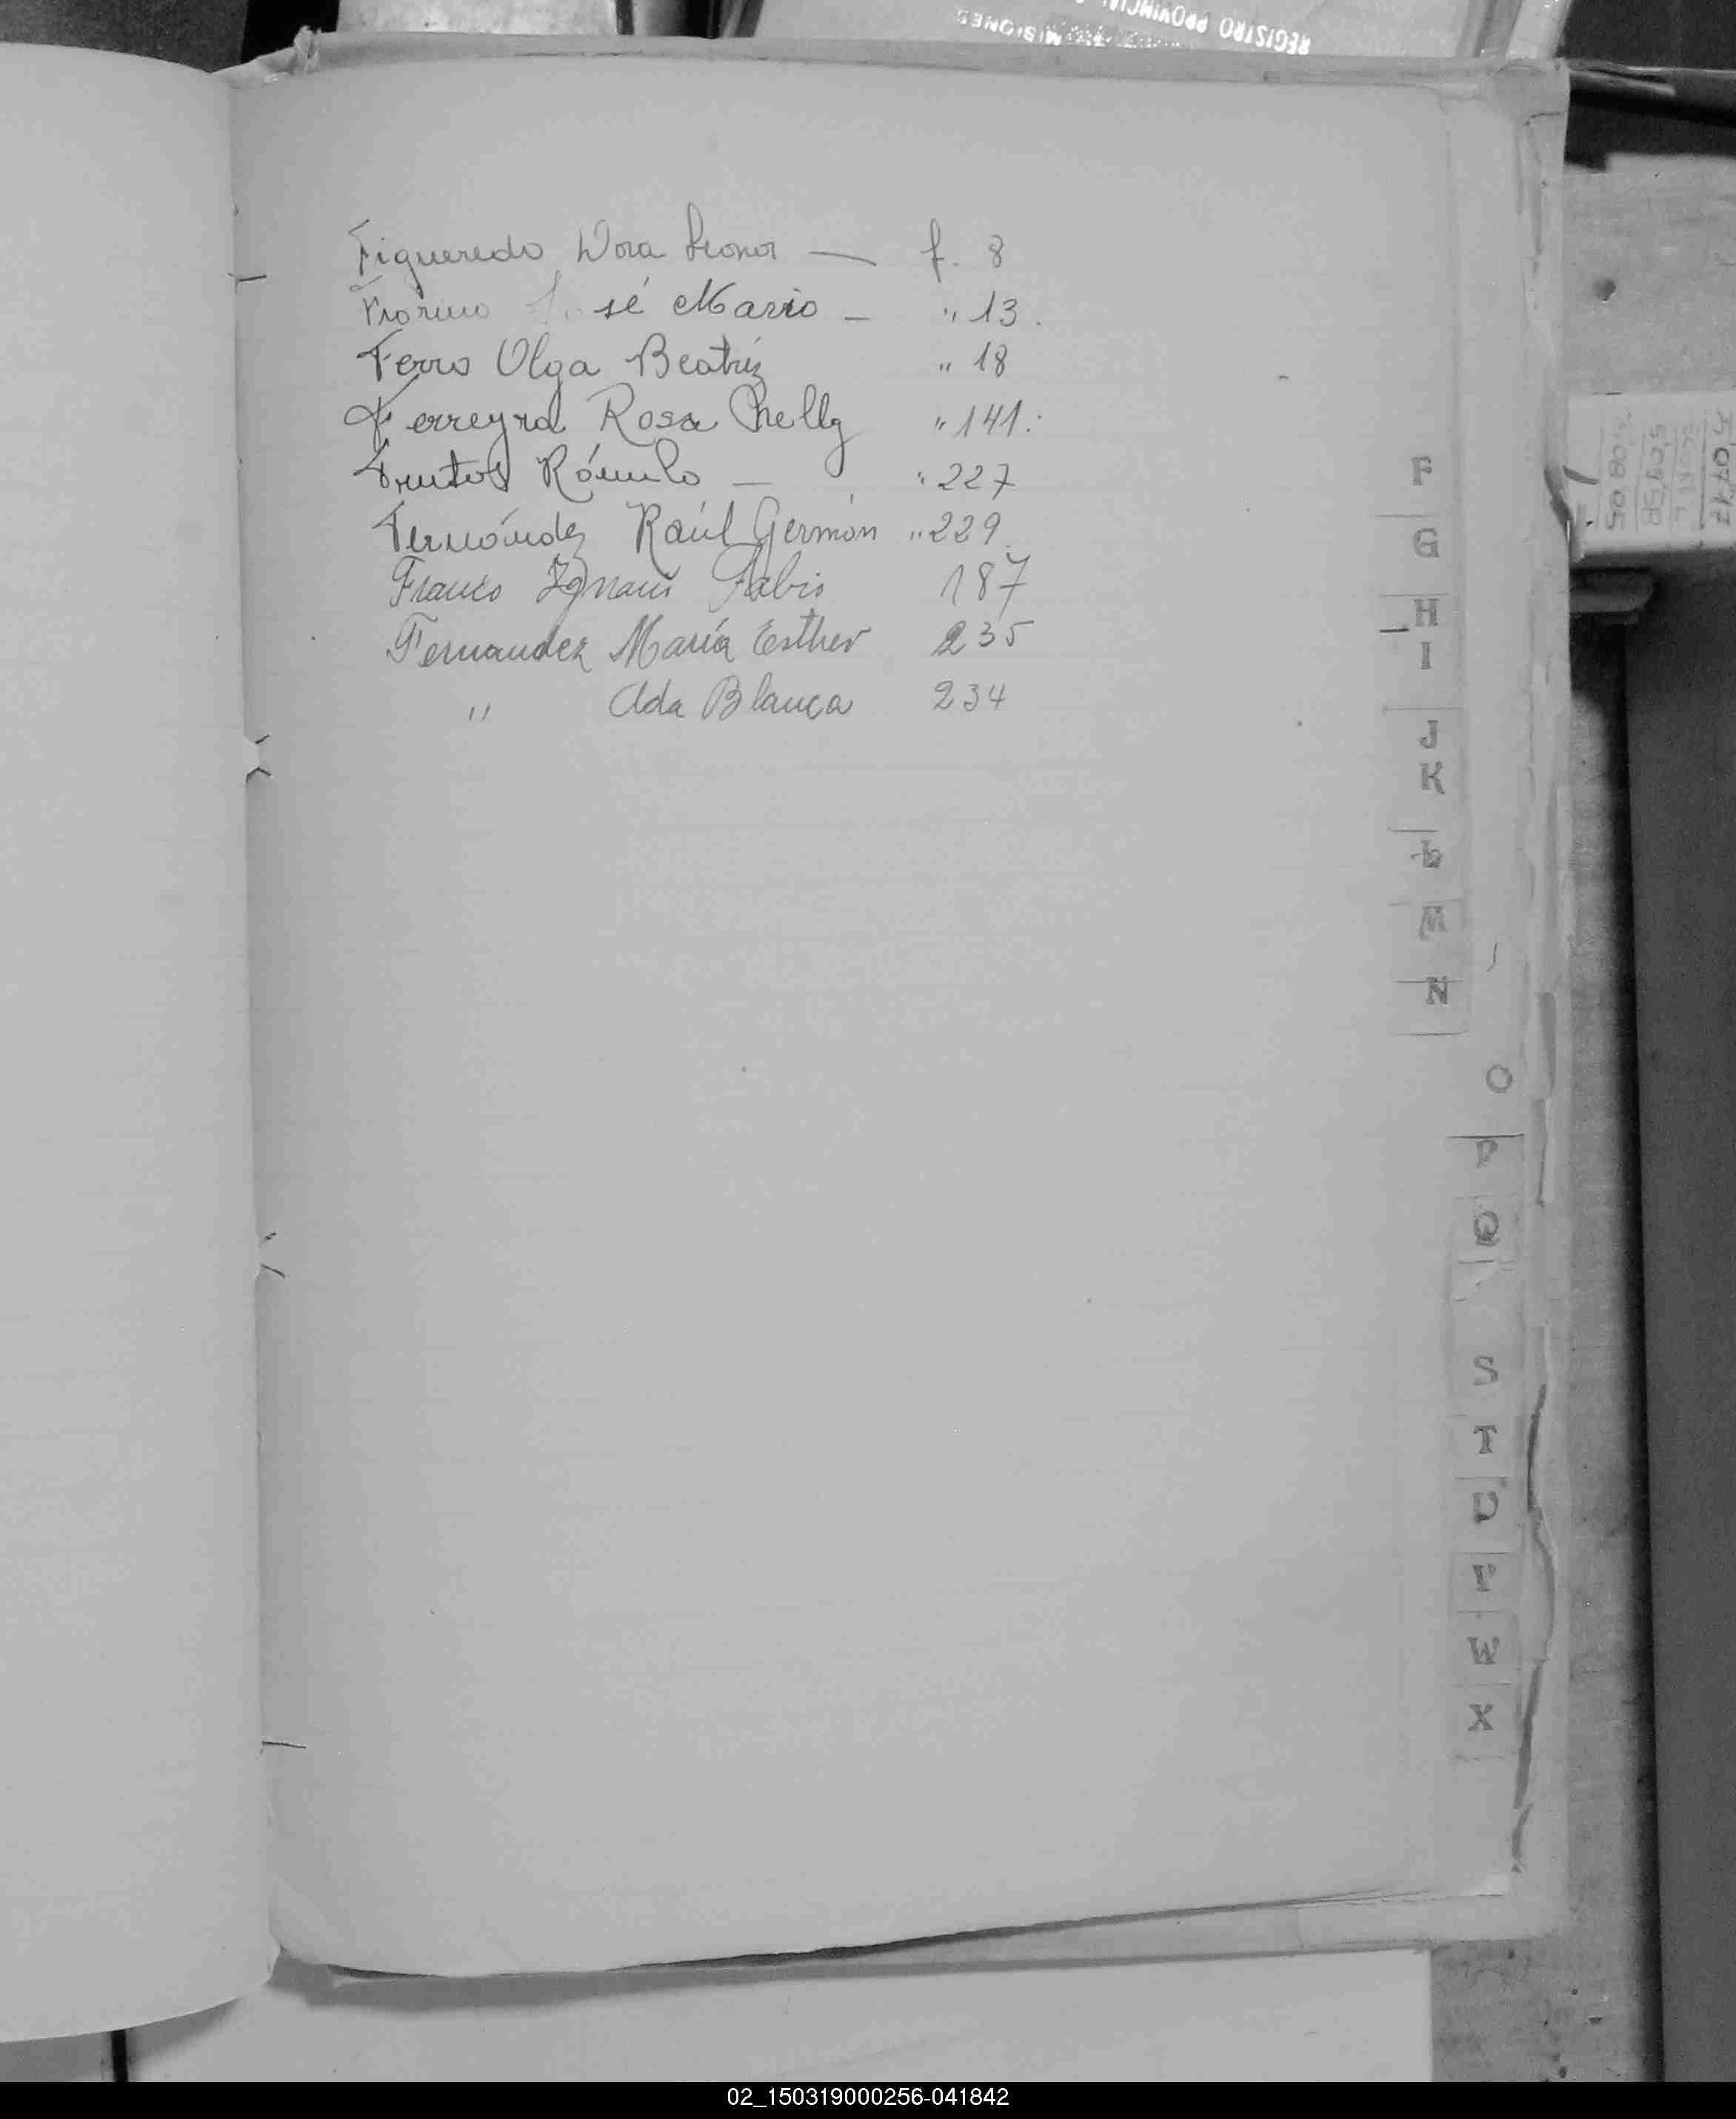 REGISTRO PROVINCIAL
MISIONES
Figueredo Dora Leonor — f. 8
sé Mario – " 13.
Ferro Olga Beatriz " 18
Ferreyra Rosa Nelly " 141.
Frutos Rómulo — " 227
Fernández Raúl Germán " 229.
Franco Ignacio Fabio 187
Fernandez María Esther 235
" Ada Blanca 234
F
G
H
I
J
K
L
M
N
O
P
Q
S
T
U
V
W
X
02_150319000256-041842